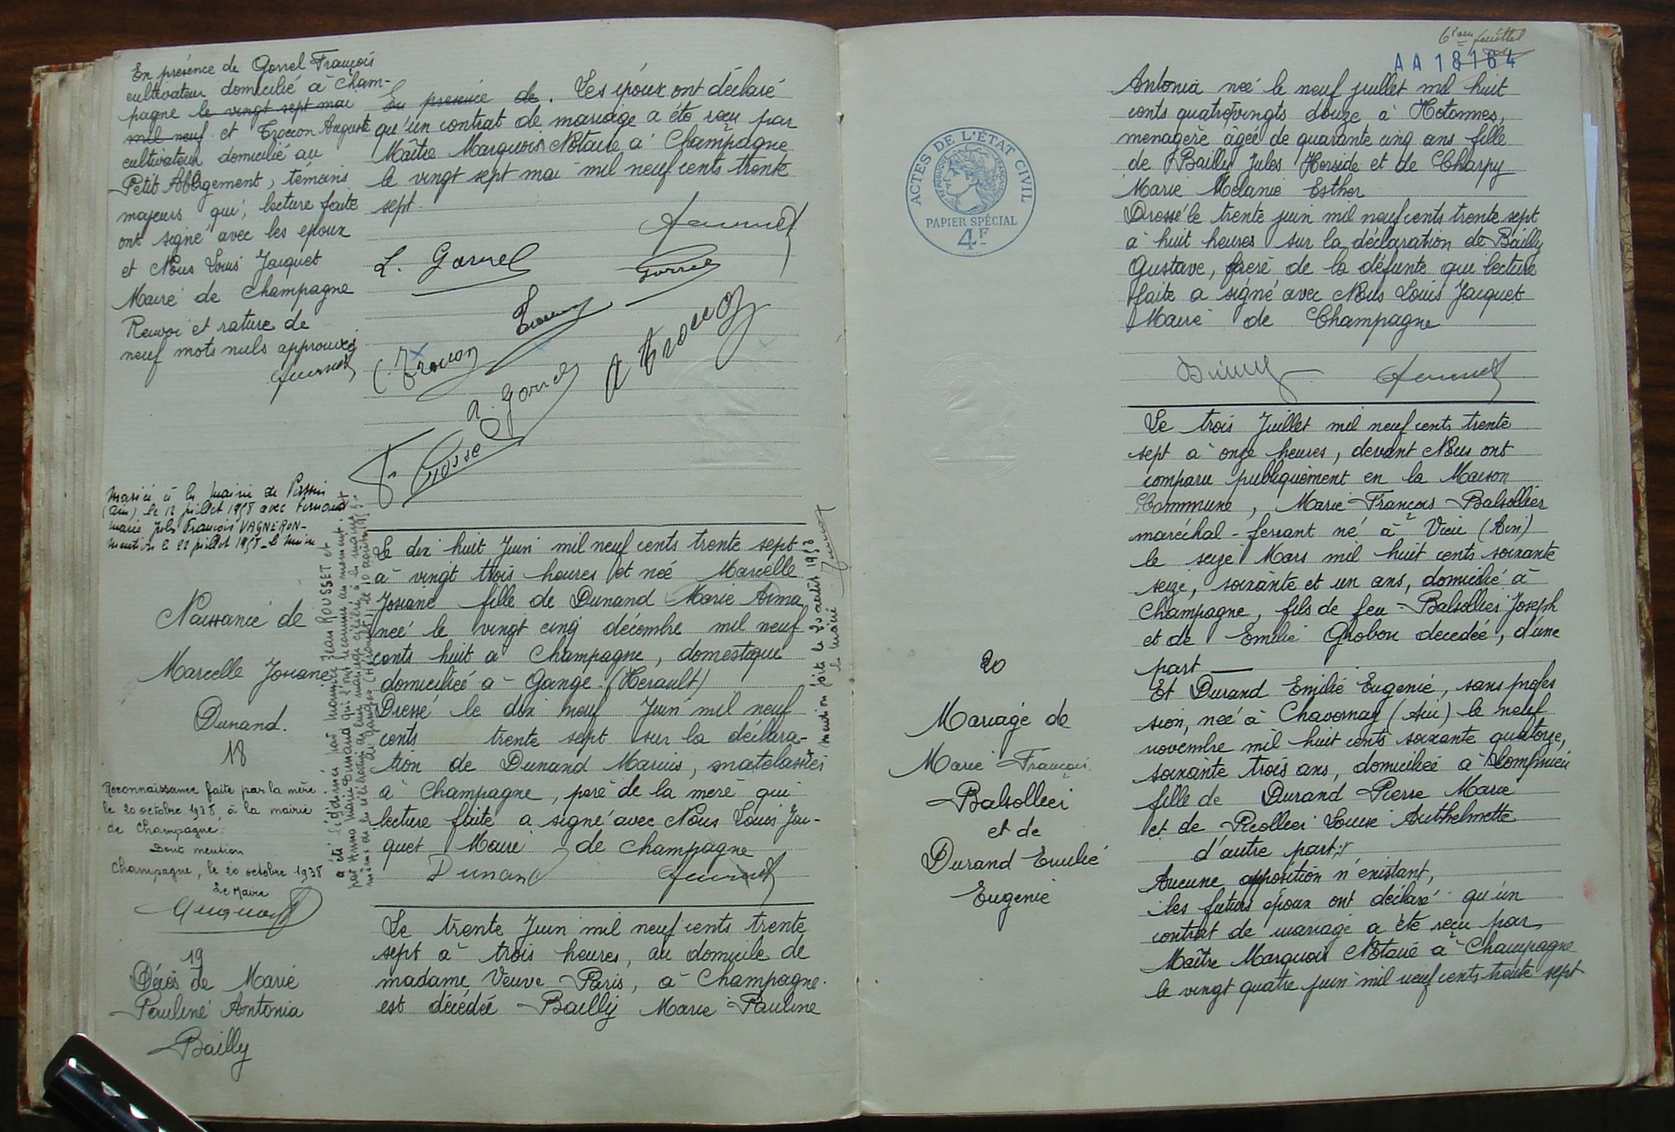 En présence de Gorrel François
cultivateur domicilié à Cham-
pagne le vingt sept mai
mil neuf et Trocon Auguste
cultivateur domicilié au
Petit Abergement, temoins
majeurs qui, lecture faite
ont signé avec les epoux
et Nous Louis Jacquet
Maire de Champagne
Renvoi et rature de
neuf mots nuls approuvés
En presence de. Les époux ont déclaré
qu'un contrat de mariage a été reçu par
Maître Marquois Notaire à Champagne
le vingt sept mai mil neuf cents trente
sept.
L. Gorrel
Gorrel
Trocon
A Trocon
a. Gorrel
Mariée à la mairie de
(Ain) le 12 juillet 1958 avec Fernand
Marie Jules François VAGNERON-
mention le 22 juillet 1958_Le Maire
Naissance de
Marcelle Josiane
Dunand.
18
Reconnaissance faite par la mère
le 20 octobre 1938, à la mairie
de Champagne.
Dont mention
Champagne, le 20 octobre 1938
Le Maire
a été légitimée par Maurice Jean ROUSSET et
par Anna Marie Dunand qui l'ont reconnue au moment
Mention faite le 20 août 1953
Le Maire
Le dix huit Juin mil neuf cents trente sept
à vingt trois heures est neé Marcelle
Josiane fille de Dunand Marie Anna
neé le vingt cinq décembre mil neuf
cents huit à Champagne, domestique
domiciliée à Gange (Herault)
Dressé le dix neuf Juin mil neuf
cents trente sept sur la déclara-
tion de Dunand Marius, matelassier
à Champagne, père de la mère qui
lecture faite a signé avec Nous Louis Jac-
quet Maire de Champagne
Dunand
19
Décès de Marie
Pauline Antonia
Bailly
Le trente Juin mil neuf cents trente
sept à trois heures, au domicile de
madame Veuve Paris, à Champagne.
est décédée Bailly Marie Pauline
AA 18164
ACTES DE L'ÉTAT CIVIL
PAPIER SPÉCIAL
4F
Antonia neé le neuf juillet mil huit
cents quatrevingts douze à Hotonnes,
menagère âgée de quarante cinq ans fille
de Bailly Jules Horside et de Charpy
Marie Mélanie Esther
Dressé le trente juin mil neuf cents trente sept
à huit heures sur la déclaration de Bailly
Gustave, frère de la défunte qui lecture
faite a signé avec Nous Louis Jacquet
Maire de Champagne
20
Mariage de
Marie François
Balsollier
et de
Durand Emilie
Eugenie
Le trois Juillet mil neuf cents trente
sept à onze heures, devant Nous ont
comparu publiquement en la Maison
Commune, Marie François Balsollier
maréchal-ferrant né à Vieu (Ain)
le seize Mars mil huit cents soixante
seize, soixante et un ans, domicilié à
Champagne, fils de feu Balsollier Joseph
et de Emilie Grobon decedée, d'une
part
Et Durand Emilie Eugenie, sans profes
sion, neé à Chavornay (Ain) le neuf
novembre mil huit cents soixante quatorze,
soixante trois ans, domiciliée à
fille de Durand Pierre Marie
et de Picollier Louise Anthelmette
d'autre part
Aucune opposition n'existant,
les futurs époux ont déclaré qu'un
contrat de mariage a été reçu par
Maître Marquois Notaire à Champagne
le vingt quatre juin mil neuf cents trente sept